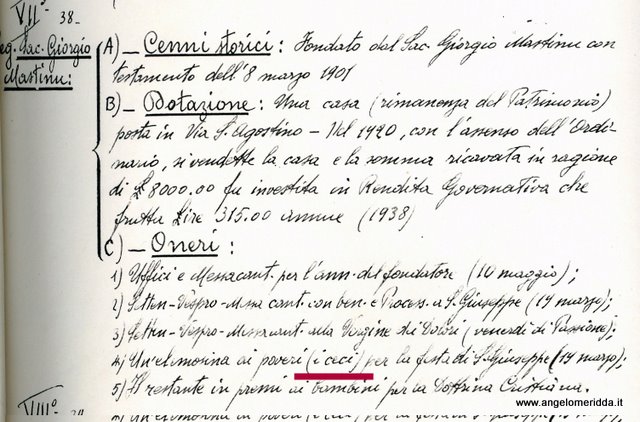 VIIº 38.
eg. Sac. Giorgio
Mastinu:
A)_ Cenni storici: Fondato dal Sac. Giorgio Mastinu con
testamento dell'8 marzo 1901
B)_ Dotazione: Una casa (rimanenza del Patrimonio)
posta in Via S. Agostino - Nel 1920, con l'assenso dell'Ordi-
nario, si vendette la casa e la somma ricavata in ragione
di £ 8000.00 fu investita in Rendita Governativa che
frutta Lire 315.00 annue (1938)
C)_ Oneri:
1) Uffici e Messa cant. per l'ann. del fondatore (10 maggio);
2) Setten-Vespro-Messa cant. con ben. e Process. a S. Giuseppe (19 marzo);
3) Setten-Vespro-Messa cant. alla Vergine dei Dolori (venerdì di Passione);
4) Un'elemosina ai poveri (i ceci) per la festa di S. Giuseppe (19 marzo);
5) Il restante in premi ai bambini per la Dottrina Cristiana.
www.angelomeridda.it
VIIIº